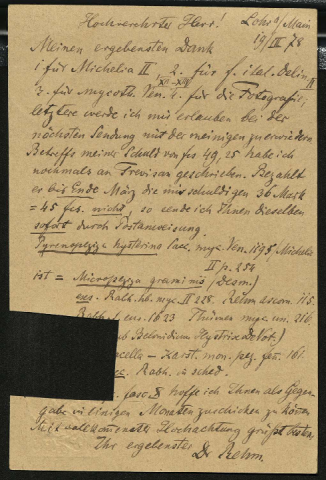 Hochverehrter Herr! Lohr a/Main
19/III 78
Meinen ergebensten Dank
1 für Michelia II 2. für f. ital. Delin. II
XII-XIII
3. für mycoth. Ven. 4. für die Fotografie,
letztere werde ich mir erlauben bei der
nächsten Sendung mit der meinigen zu erwiedern
Betreffs meiner Schuld von frs 49,25 habe ich
nochmals an Trevisan geschrieben. Bezahlt
er bis Ende März die mir schuldigen 36 Mark
= 45 frcs. nicht, so sende ich Ihnen dieselben
sofort durch Postanweisung.
Pyrenopeziza hysterina Sacc. myc. Ven. 1195, Michelia
II p. 254
ist = Micropeziza graminis (Desm.)
exs. Rabh. hb. myc. II 228. Rehm ascom. 115.
Rabh. f. eur. 1623 Thümen myc. un. 216.
Belonidium Hystrix DeNot.)
Karst. mon. pez. fen. 161.
Rabh. in sched.
fasc. hoffe ich Ihnen als Gegen
gabe in einigen Monaten zuschicken zu können
Mit vollkommenster Hochachtung grüßt bestens
Ihr ergebenster Dr Rehm